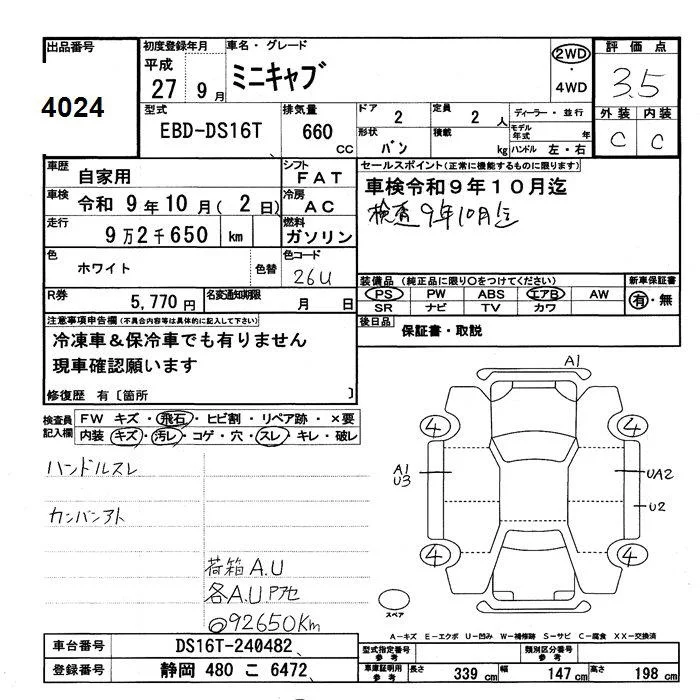 出品番号
4024
初度登録年月
平成
27 9月
車名・グレード
ミニキャブ
2WD
・
4WD
評価点
3.5
外装 内装
C C
型式
EBD-DS16T
排気量
660
CC
ドア
2
定員
2 人
形状
バン
積載
kg
ディーラー・並行
モデル年式 年
ハンドル 左・右
車歴
自家用
シフト
FAT
車検
令和 9年10月(2日)
冷房
AC
走行
9万2千650 km
燃料
ガソリン
色
ホワイト
色替
色コード
26U
R券
5,770円
名変通知期限
月 日
セールスポイント(正常に機能するものに限ります)
車検令和9年10月迄
検査9年10月迄
装備品(純正品に限り○をつけてください)
PS PW ABS エアB AW
SR ナビ TV カワ
新車保証書
有・無
後日品
保証書・取説
注意事項申告欄(不具合内容等は具体的に記入して下さい)
冷凍車&保冷車でも有りません
現車確認願います
修復歴 有〔箇所 〕
検査員記入欄
FW キズ・飛石・ヒビ割・リペア跡・×要
内装 キズ・汚レ・コゲ・穴・スレ・キレ・破レ
ハンドルスレ
カンバンアト
荷箱A.U
各A.UPアセ
◎92650Km
A1
4 4
A1
U3
UA2
U2
4 4
スペア
A─キズ E─エクボ U─凹み W─補修跡 S─サビ C─腐食 XX─交換済
車台番号
DS16T-240482
登録番号
静岡 480 こ 6472
型式指定番号
参考
類別区分番号
参考
車庫証明用
参考
長さ 339 cm 幅 147 cm 高さ 198 cm